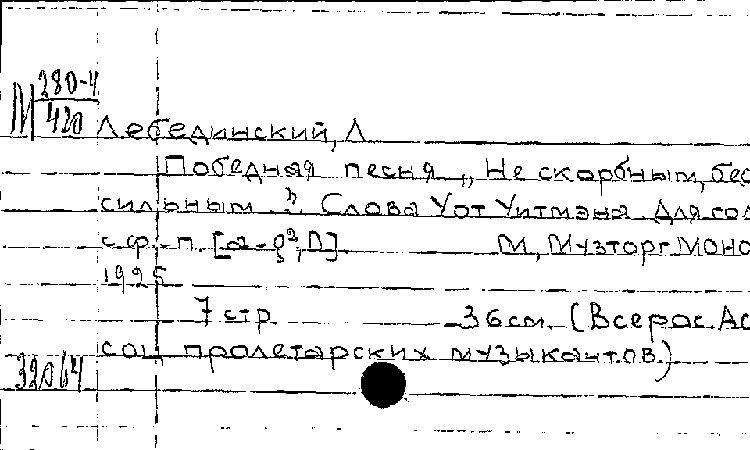 М 280-4
420
Лебединский, Л
Победная песня „Не скорбным, бес
сильным...". Слова Уот Уитмэна. Для гол
с ф.-п.
М, Музторг МОНО
1925
7 стр. 36 см. (Всерос. Ас
соц пролетарских музыкантов.)
32064